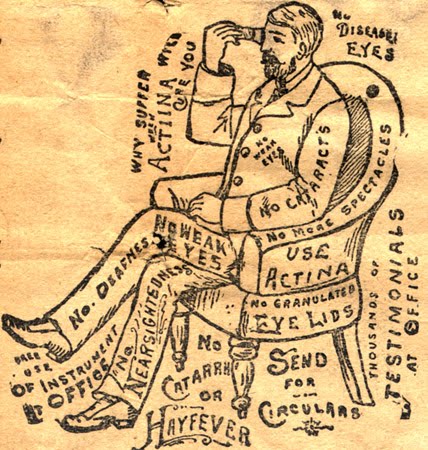 WHY SUFFER
WHEN
ACTIINA WILL
CURE YOU
NO
DISEASE!
EYES
NO
WEAK
EYES
NO CATARACT'S
NO MORE SPECTACLES
USE
ACTINA
NO GRANULATED
EYE LIDS
NO WEAK
EYES
NO. DEAFNES
NO
NEARSIGHTEDNES
FREE
USE
OF INSTRUMENT
AT OFFICE
NO
CATARRH
OR
HAYFEVER
SEND
FOR
CIRCULARS
THOUSANDS OF
TESTIMONIALS
AT OFFICE